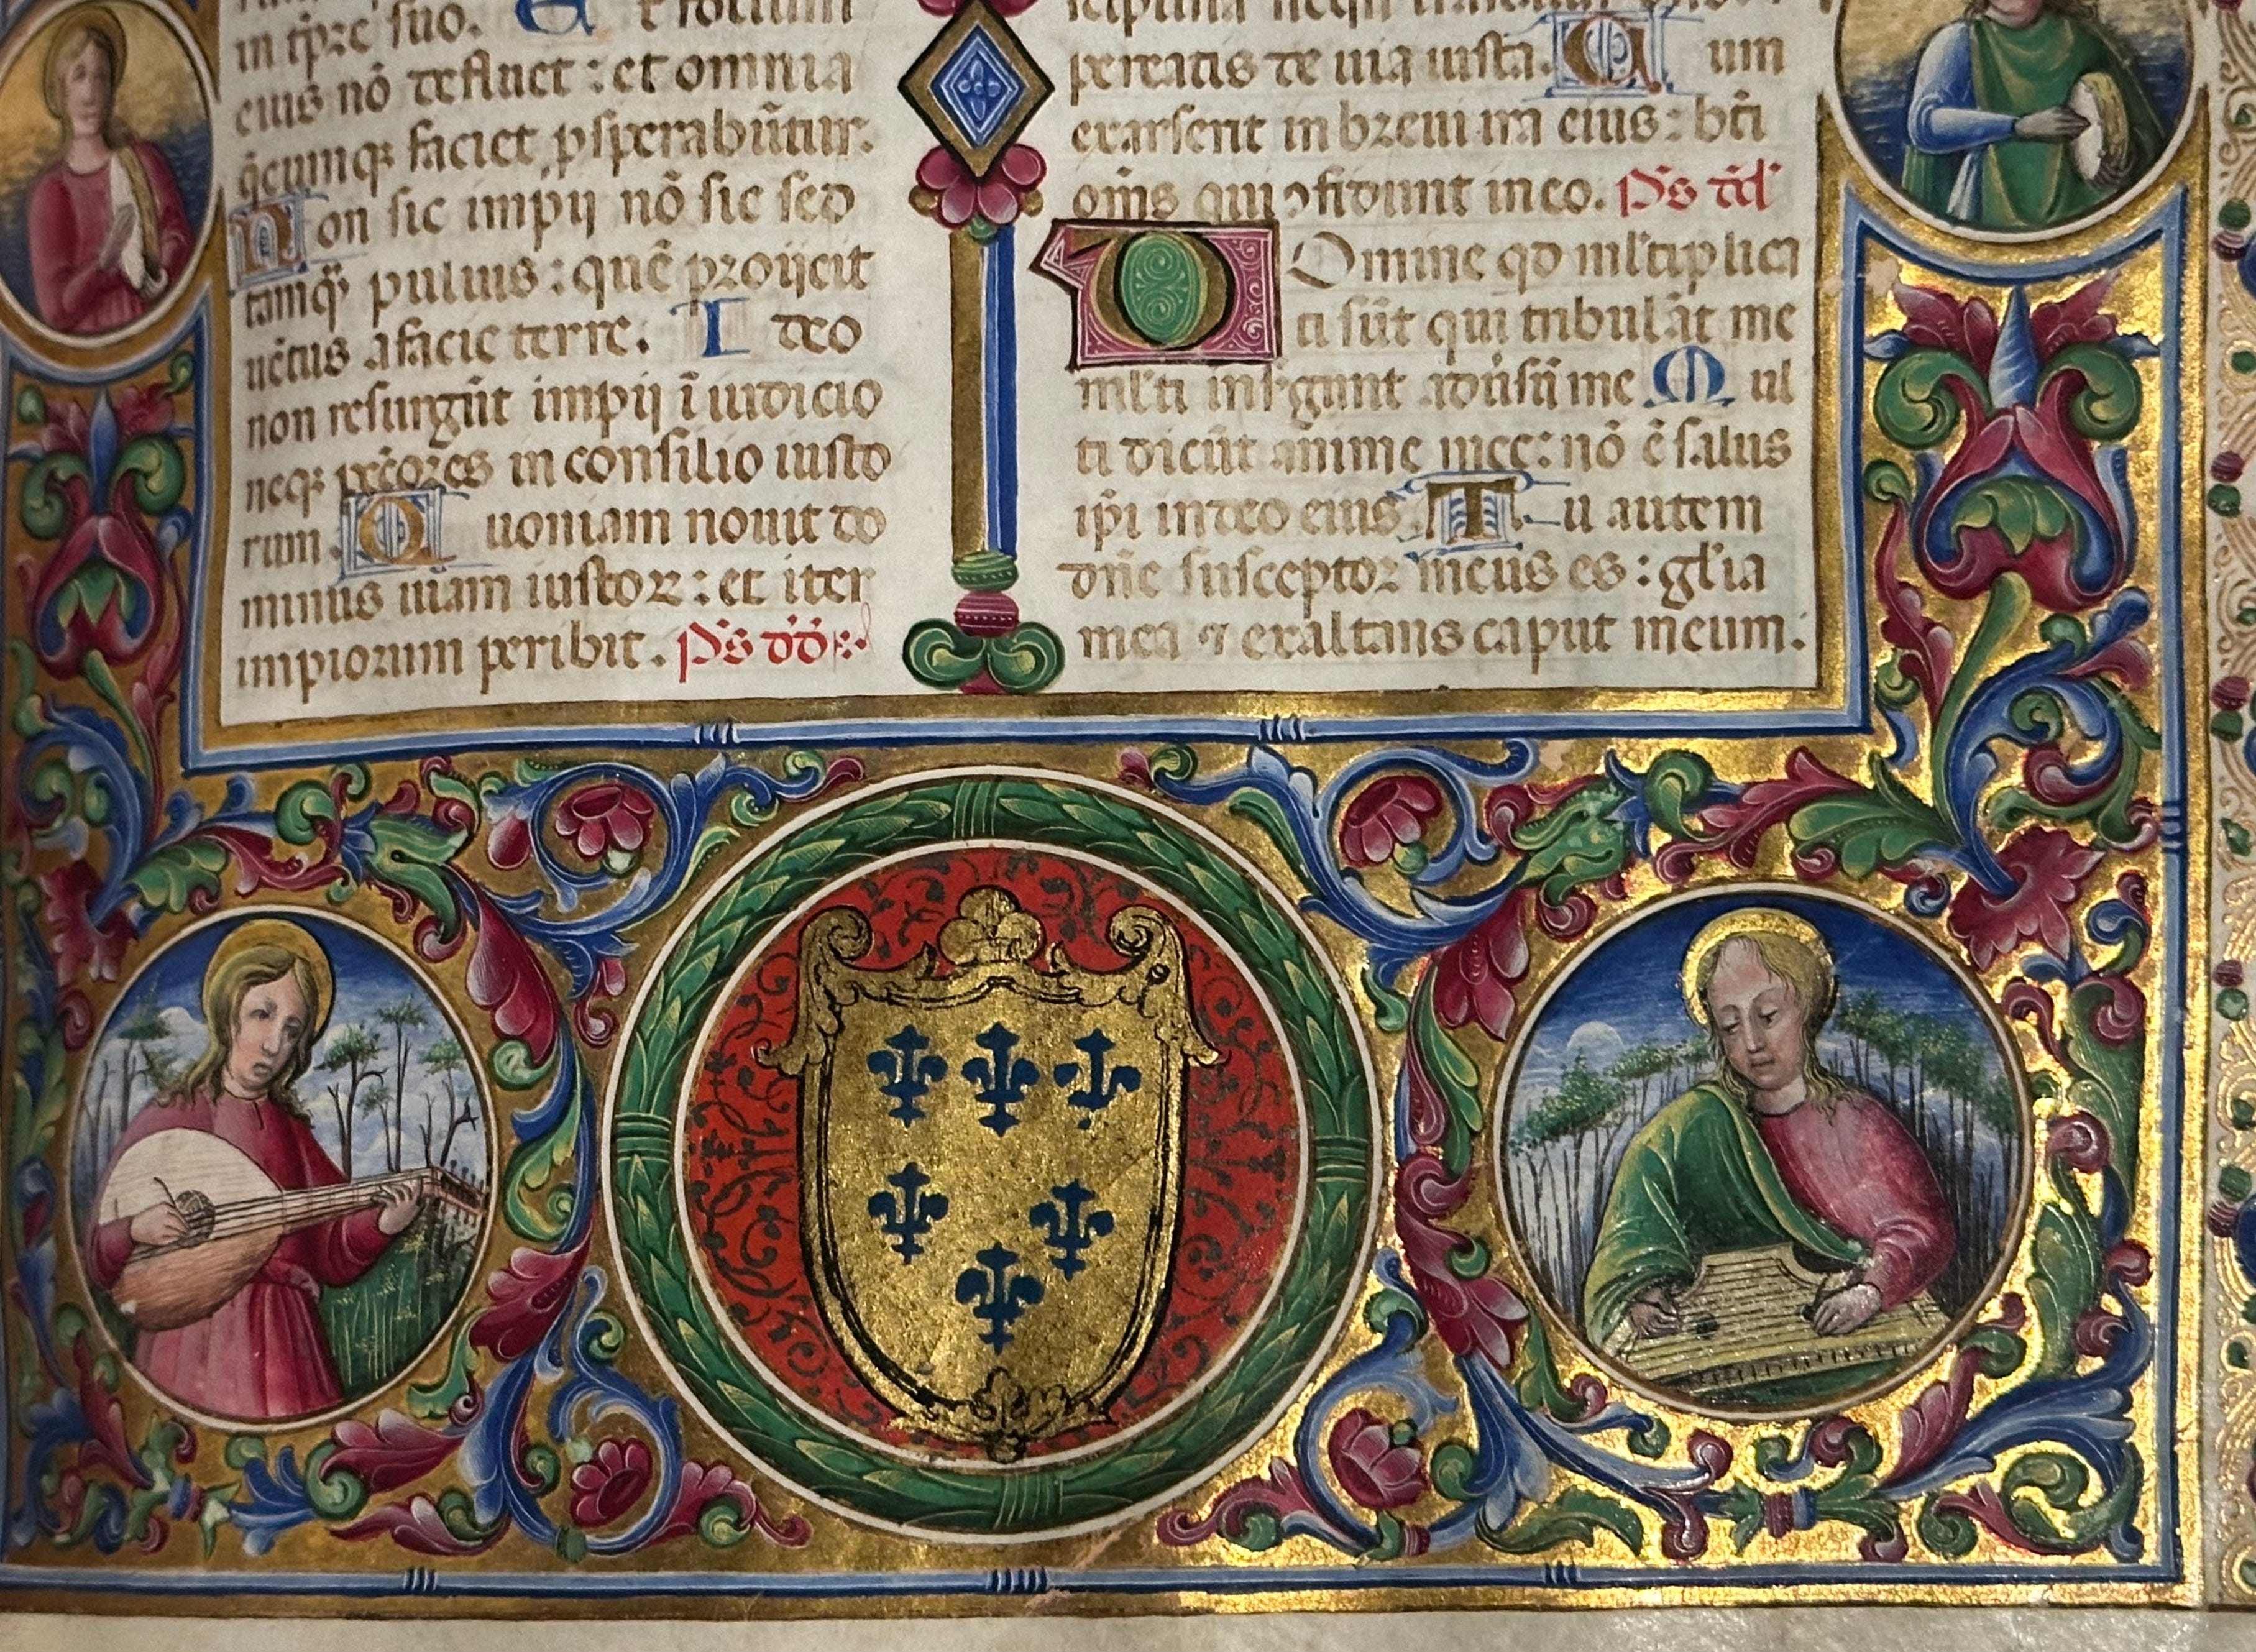 in tp̄re suo. Et folium
eius nō defluet : et omnia
q̄cumq; faciet ꝓsperabūtur.
Non sic impij nō sic sed
tamq̄ puluis : quē proijcit
uētus a facie terre. Ideo
non resurgūt impij ī iudicio
neq; pctōres in consilio iusto
rum. Quoniam nouit do
minus uiam iustoꝝ : et iter
impiorum peribit. Ps dd
pereatis de uia iusta. Cum
exarserit in breui ira eius : bt̄i
om̄s qui ꝯfidunt in eo. Ps dd
Domine qd ml̄tiplica
ti sūt qui tribulāt me
ml̄ti insurgunt aduersū me Mul
ti dicūt anime mee : nō ē salus
ip̄i in deo eius. Tu autem
dn̄e susceptor meus es : gl̄ia
mea ⁊ exaltans caput meum.